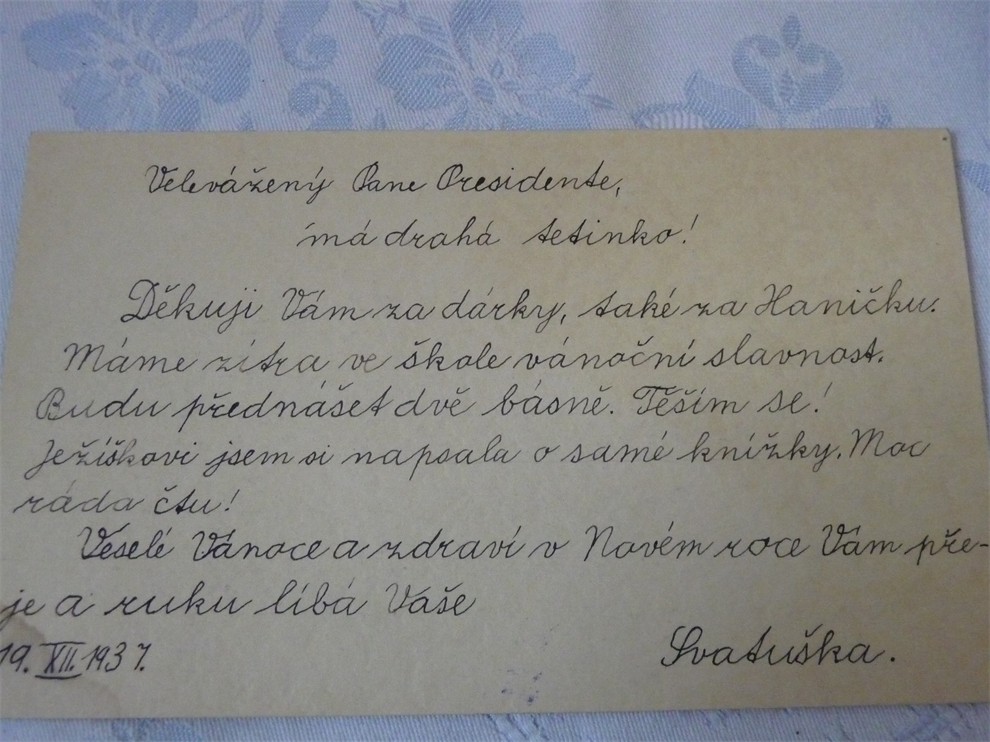 Velevážený Pane Presidente,
má drahá tetinko!
Děkuji Vám za dárky, také za Haničku.
Máme zítra ve škole vánoční slavnost.
Budu přednášet dvě básně. Těším se!
Ježíškovi jsem si napsala o samé knížky. Moc
ráda čtu!
Veselé Vánoce a zdraví v Novém roce Vám pře-
je a ruku líbá Vaše
Svatuška.
19. XII. 1937.